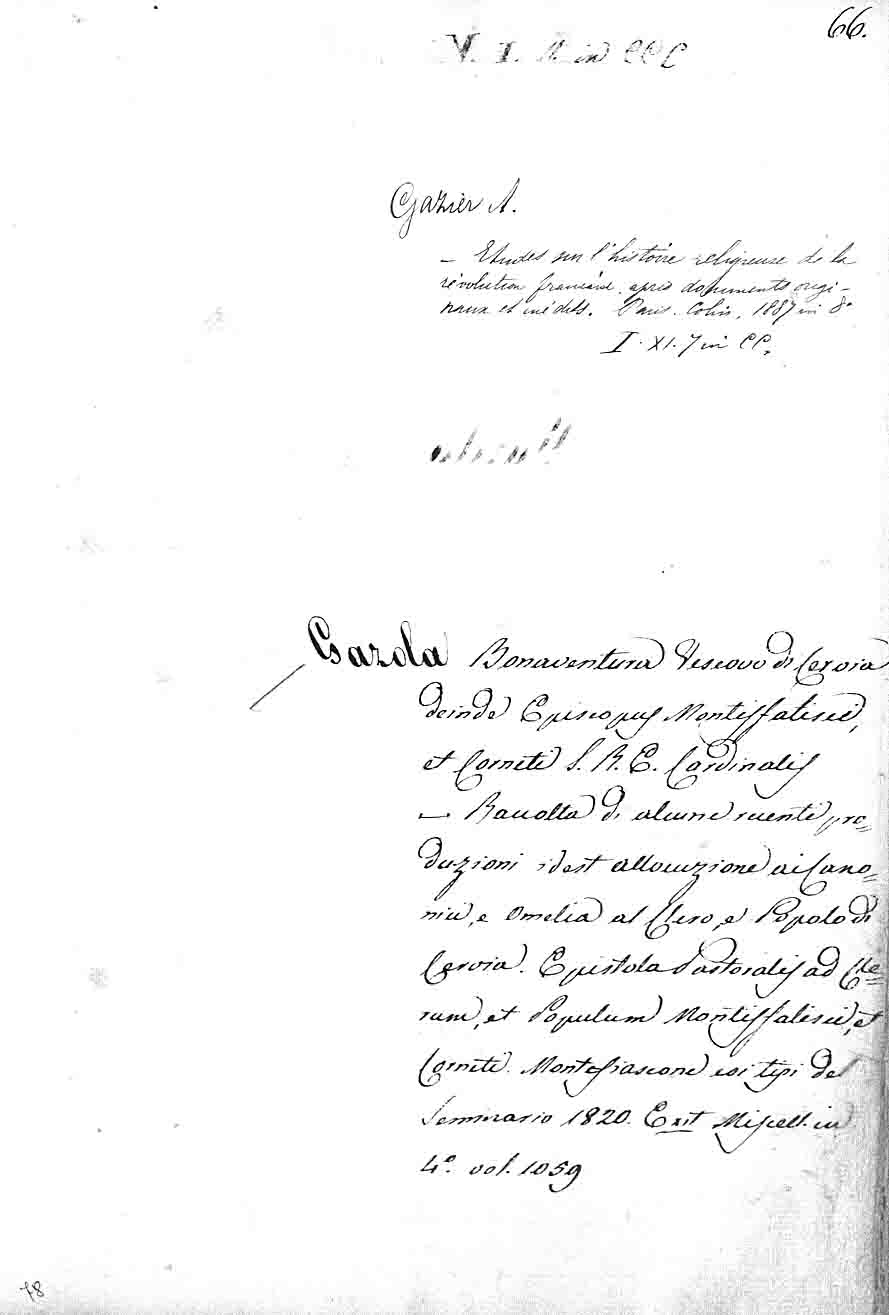 66.
V. I. in CCC
Gazier A.
— Etudes sur l'histoire religieuse de la
révolution française après documents origi-
naux et inédits. Paris. Colin, 1887 in 8°
I. XI. 7 in CC.
Gazola Bonaventura Vescovo di Cervia
deinde Episcopus Montisfalisci,
et Corneti S. R. E. Cardinalis
— Raccolta di alcune recenti pro=
duzioni idest allocuzione ai Cano=
nici, e Omelia al Clero, e Popolo di
Cervia. Epistola Pastoralis ad Cle=
rum, et Populum Montisfalisci, et
Corneti. Montefiascone coi tipi del
Seminario 1820. Exit Miscell. in
4.° vol. 1059
78